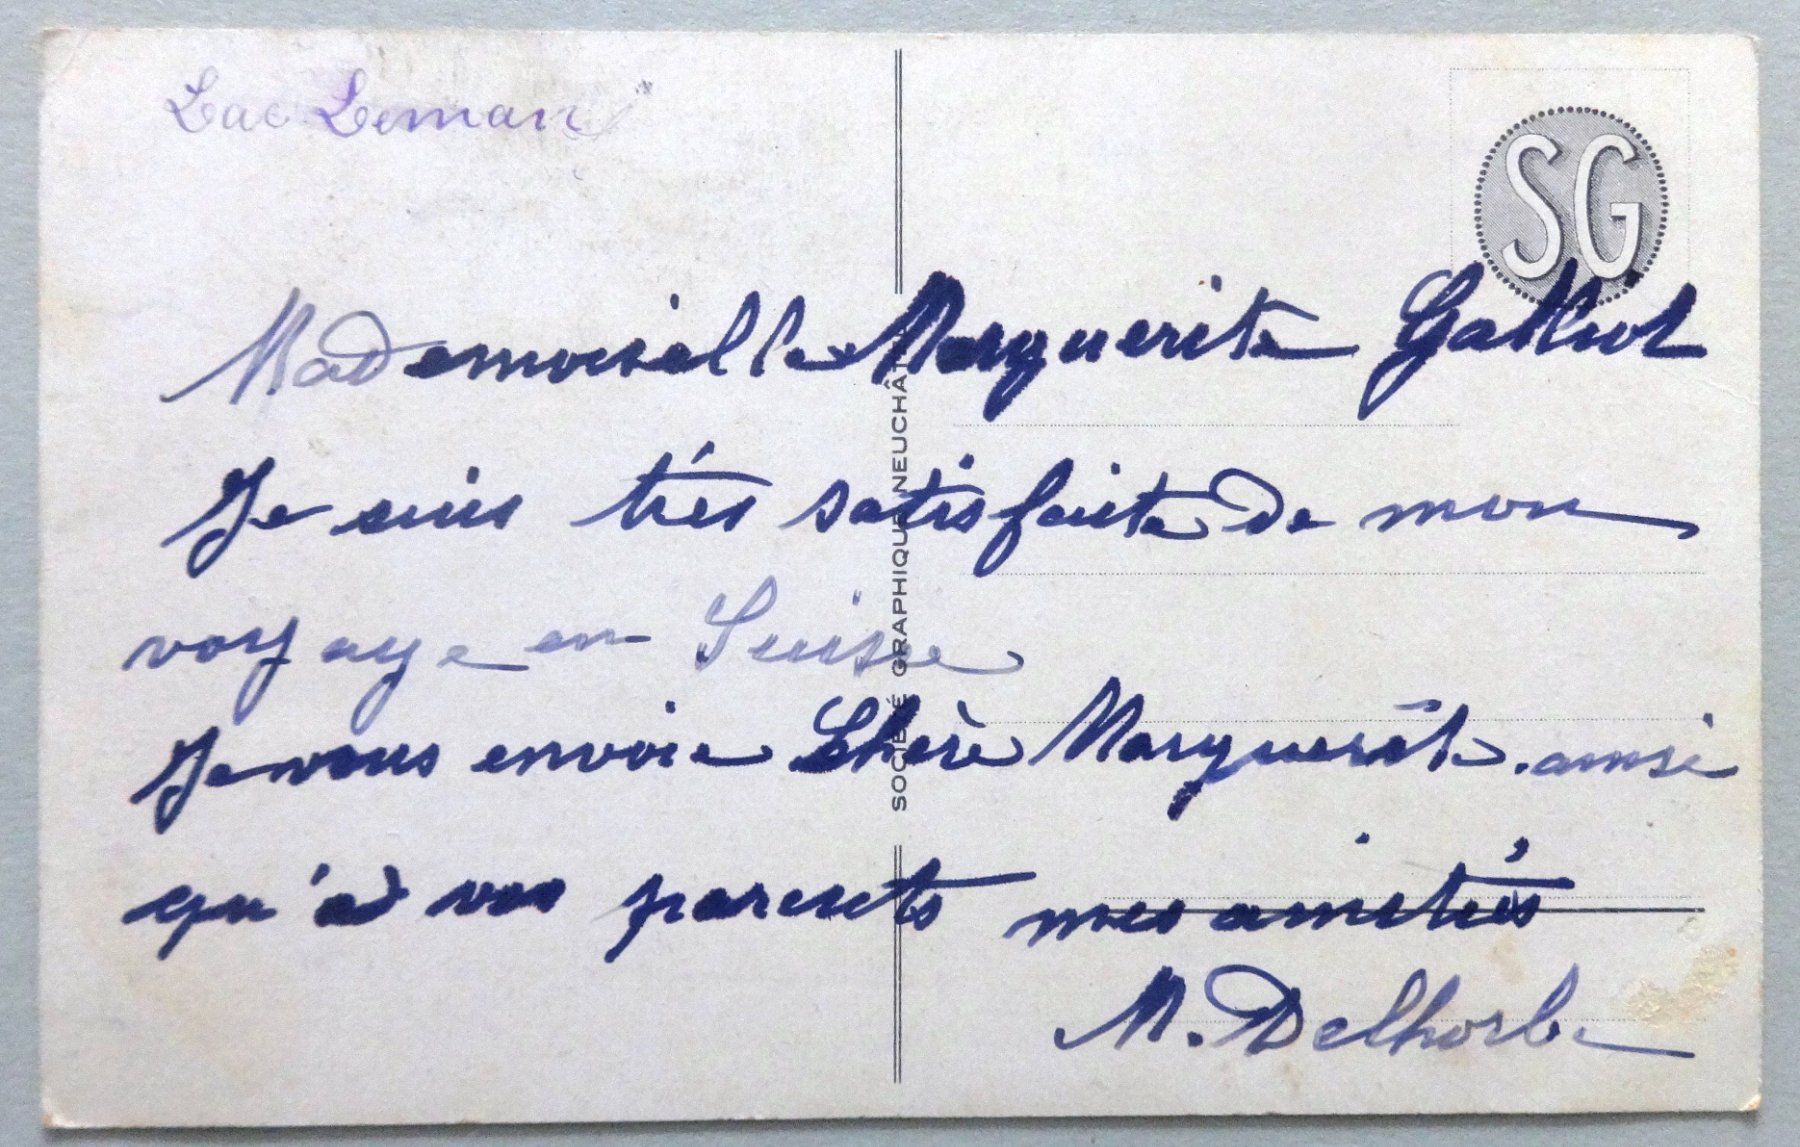 Lac Leman
SG
Mademoiselle Marguerite
Je suis très satisfaite de mon
voyage en Suisse
Je vous envoie Chère Marguerite. ainsi
qu'à vos parents mes amitiés
M. Delhorbe
SOCIÉTÉ GRAPHIQUE NEUCHÂTEL